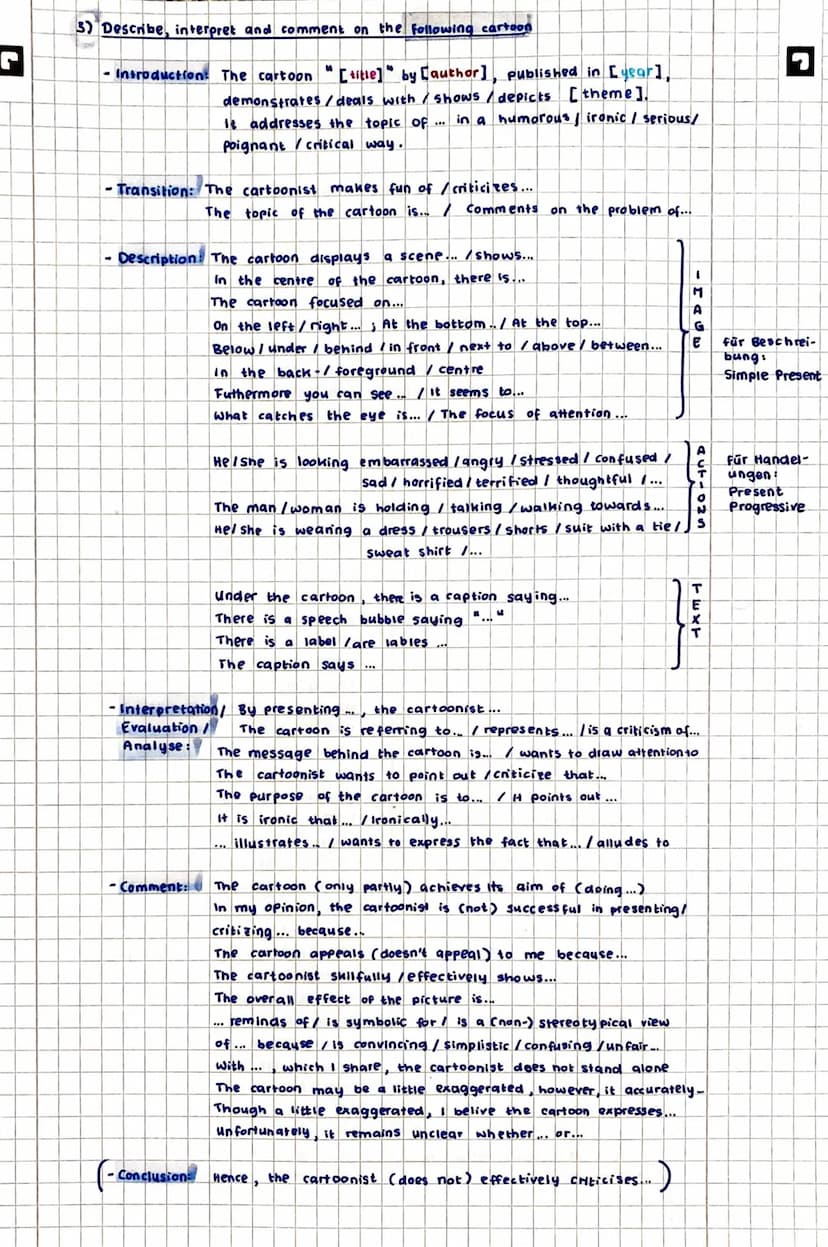 3) Describe, interpret and comment on the following cartoon
- Introduction: The cartoon "[title]" by [author], published in [year],
demonstrates / deals with / shows / depicts [theme].
It addresses the topic of ... in a humorous / ironic / serious /
poignant / critical way.
- Transition: The cartoonist makes fun of / criticizes...
The topic of the cartoon is... / Comments on the problem of...
- Description: The cartoon displays a scene... / shows...
In the centre of the cartoon, there is...
The cartoon focused on...
On the left / right... ; At the bottom.. / At the top...
Below / under / behind / in front / next to / above / between...
In the back- / foreground / centre
Futhermore you can see... / It seems to...
What catches the eye is... / The focus of attention ...
IMAGE
für Beschrei-
bung:
Simple Present
He / she is looking embarrassed / angry / stressed / confused /
sad / horrified / terrified / thoughtful / ...
The man / woman is holding / talking / walking towards...
He / she is wearing a dress / trousers / shorts / suit with a tie /
sweat shirt / ...
ACTIONS
für Handel-
ungen:
Present
Progressive
Under the cartoon, there is a caption saying...
There is a speech bubble saying "..."
There is a label / are lables ...
The caption says ...
TEXT
- Interpretation / By presenting ..., the cartoonist...
Evaluation / The cartoon is referring to... / represents... / is a criticism of...
Analyse: The message behind the cartoon is... / wants to draw attention to
The cartoonist wants to point out / criticize that...
The purpose of the cartoon is to... / It points out ...
It is ironic that... / Ironically...
... illustrates... / wants to express the fact that... / alludes to
- Comment: The cartoon (only partly) achieves its aim of (doing...)
In my opinion, the cartoonist is (not) successful in presenting /
critizing ... because...
The cartoon appeals (doesn't appeal) to me because...
The cartoonist skilfully / effectively shows...
The overall effect of the picture is...
... reminds of / is symbolic for / is a (non-) stereotypical view
of ... because / is convincing / simplistic / confusing / unfair...
With ... , which I share, the cartoonist does not stand alone
The cartoon may be a little exaggerated, however, it accurately...
Though a little exaggerated, I belive the cartoon expresses...
Unfortunately, it remains unclear whether... or...
(- Conclusion: Hence, the cartoonist (does not) effectively criticises...)